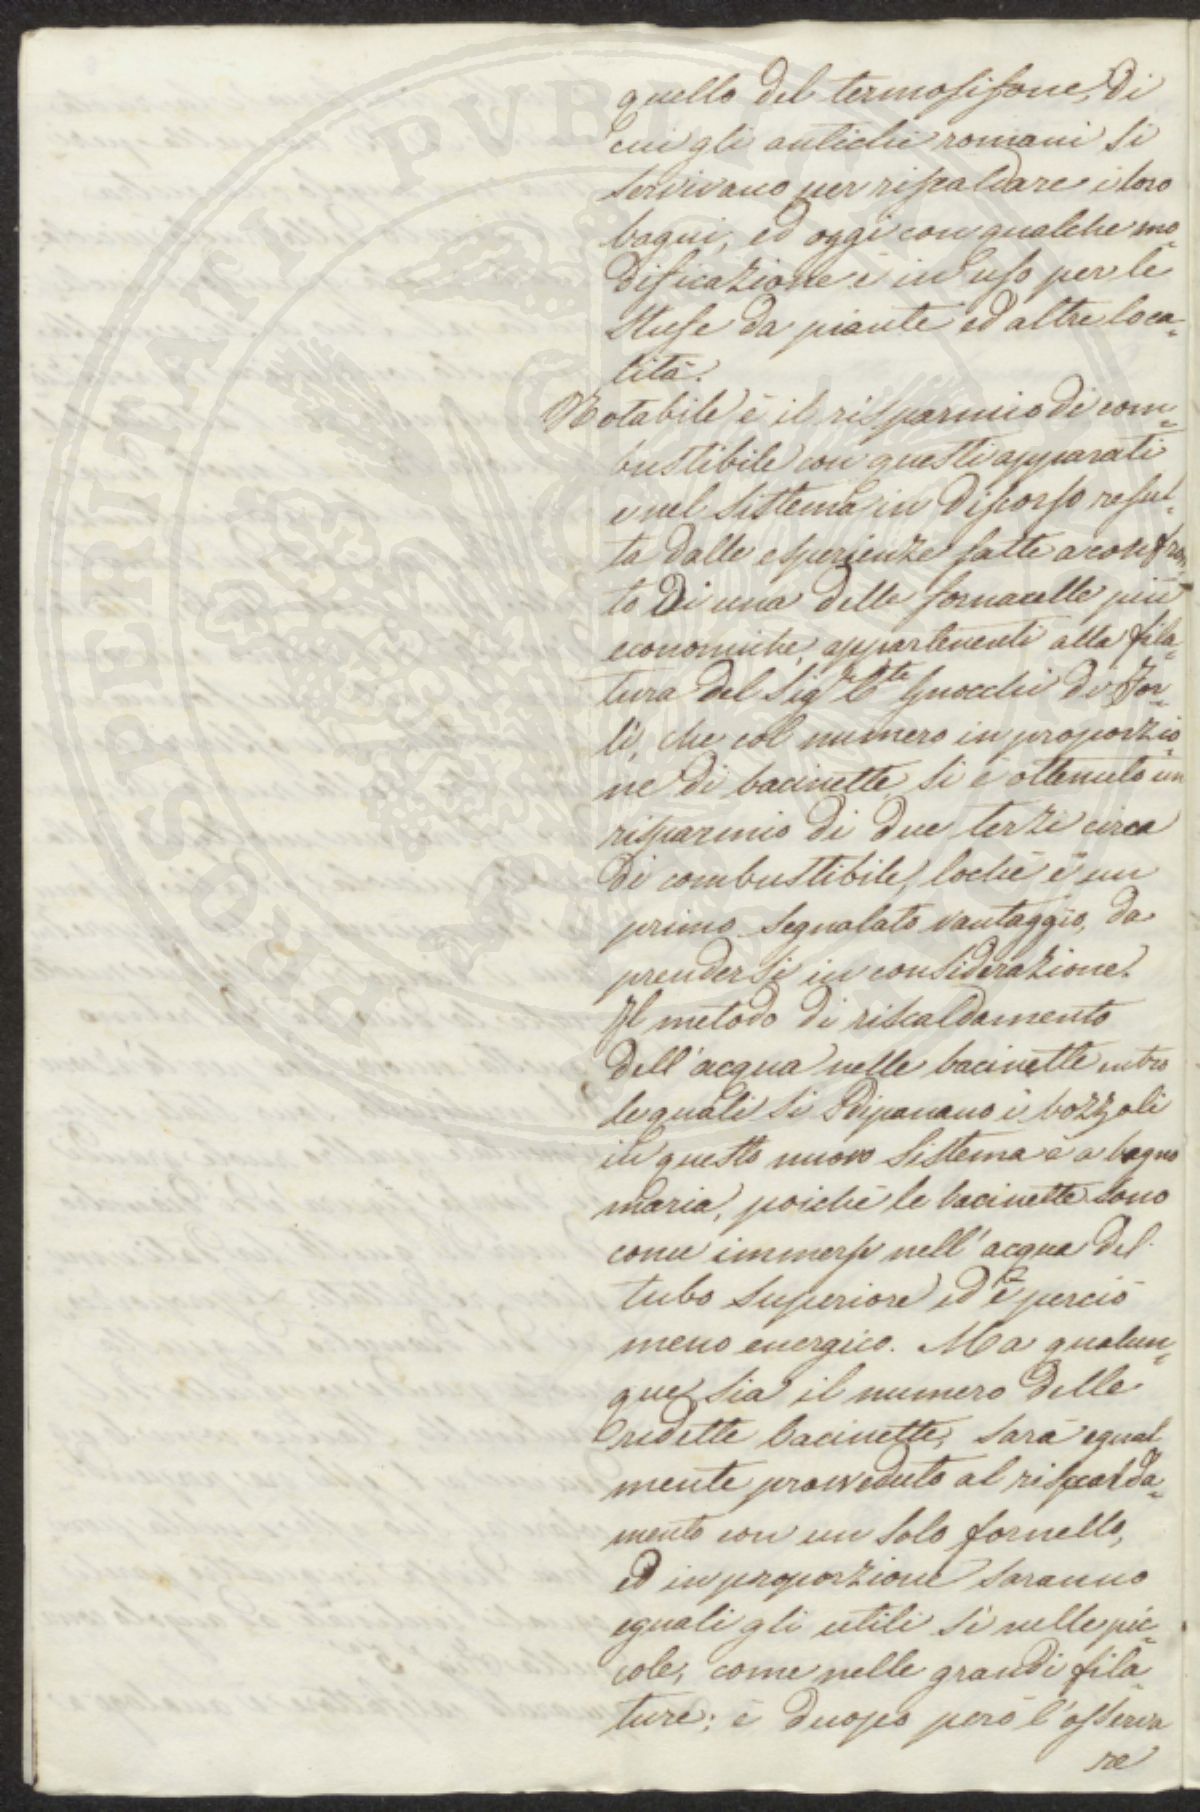 quello del termosifone, di
cui gli antichi romani si
servivano per riscaldare i loro
bagni, ed oggi con qualche mo=
dificazione è in uso per le
Stufe da piante ed altre loca=
lità.
Notabile è il risparmio di com=
bustibile con questi apparati
e nel Sistema in discorso resul=
ta dalle esperienze fatte a confron=
to di una delle fornacelle più
economiche, appartenenti alla fila=
tura del Sigr Cte Gnocchi di For=
lì, che col numero in proporzio=
ne di bacinette si è ottenuto un
risparmio di due terzi circa
di combustibile, lochè è un
primo segnalato vantaggio, da
prendersi in considerazione.
Il metodo di riscaldamento
dell'acqua nelle bacinette entro
le quali si dipanano i bozzoli
in questo nuovo Sistema è a bagno
maria, poichè le bacinette sono
come immerse nell'acqua del
tubo superiore ed è perciò
meno energico. Ma qualun=
que sia il numero delle
redette bacinette, sarà egual
mente provveduto al riscalda=
mento con un solo fornello,
ed in proporzione saranno
eguali gli utili sì nelle pic=
cole, come nelle grandi fila=
ture; è duopo però l'osserva
re
PROSPERITATI PUBLICAE